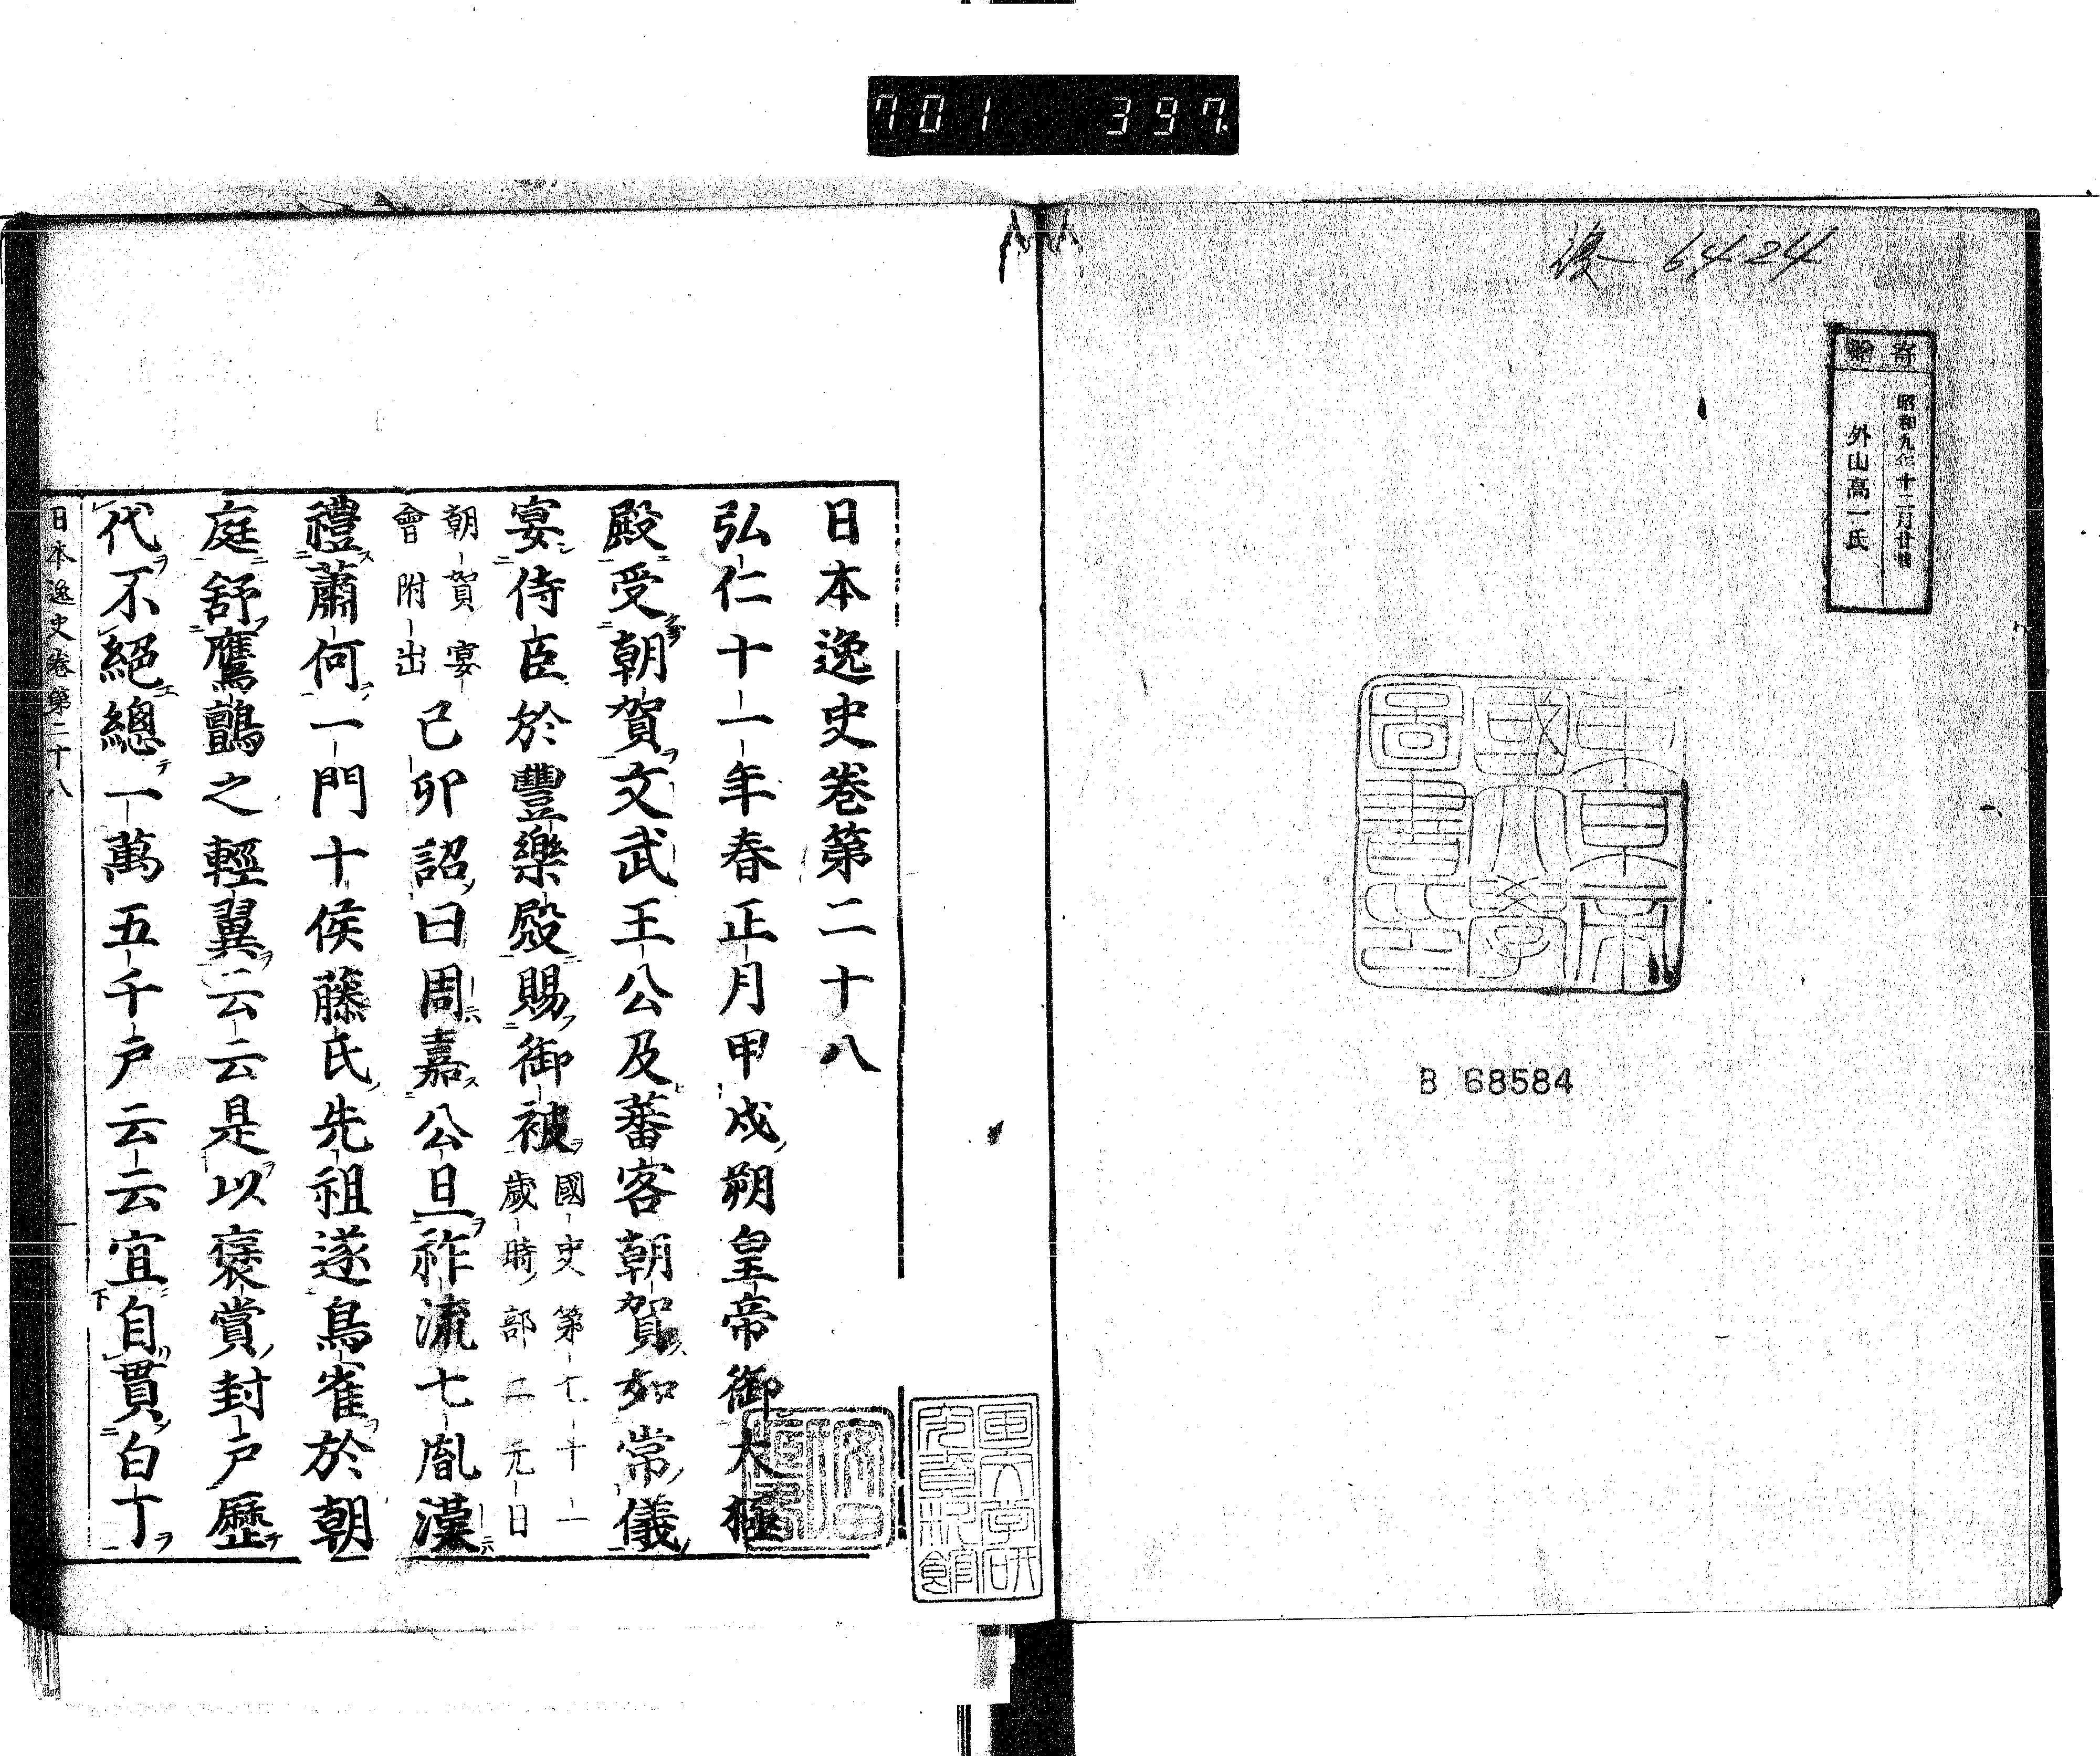 701 397
6424
寄贈
昭和九年十二月廿
外山高一氏
東京帝
國大學
圖書之印
B 68584
日本逸史卷第二十八
弘仁十一年春正月甲戌朔皇帝御大極
殿受朝賀文武王公及蕃客朝賀如常儀
宴侍臣於豐樂殿賜御被國史第七十一
歲時部二元日
朝賀宴
會附出
己卯詔曰周嘉公旦祚流七胤漢
禮蕭何一門十侯藤氏先祖遂鳥雀於朝
庭舒鷹鸇之輕翼云云是以褒賞封戶歷
代不絕總一萬五千戶云云宜自貫白丁
日本逸史卷第二十八 一